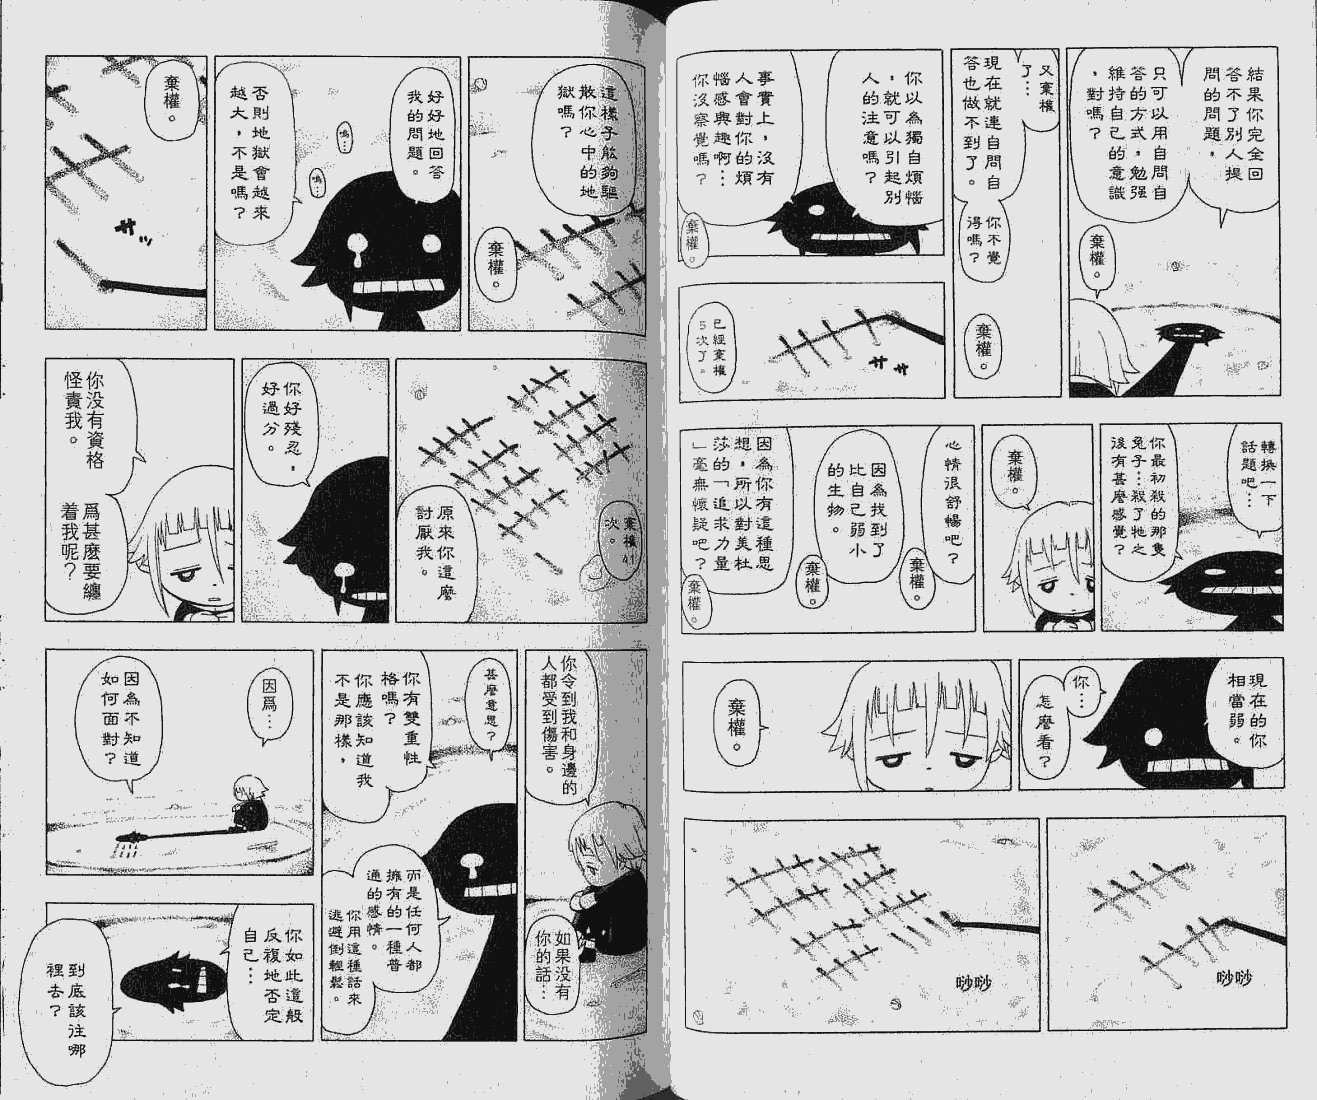 結果你完全回
答不了別人提
問的問題，
只可以用自問自
答的方式，勉强
維持自己的意識
，對嗎？
棄權。
又棄權
了…
現在就連自問自
答也做不到了。
你不覺
得嗎？
棄權。
你以為獨自煩惱
，就可以引起別
人的注意嗎？
事實上，沒有
人會對你的煩
惱感興趣啊…
你沒察覺嗎？
棄權。
已經棄權
５次了。
ササ
轉換一下
話題吧…
你最初殺的那隻
兔子…殺了牠之
後有甚麼感覺？
棄權。
心情很舒暢吧？
棄權。
因為找到了
比自己弱小
的生物。
棄權。
因為你有這種思
想，所以對美杜
莎的「追求力量
」毫無懷疑吧？
棄權。
現在的你
相當弱。
你…
怎麼看？
棄權。
唦唦
唦唦
這樣子能夠驅
散你心中的地
獄嗎？
棄權。
好好地回答
我的問題。
嗚…
嗚…
否則地獄會越來
越大，不是嗎？
棄權。
サッ
棄權41
次。
原來你這麼
討厭我。
你好殘忍，
好過分。
你没有資格
怪責我。
爲甚麼要纏
着我呢？
你令到我和身邊的
人都受到傷害。
如果没有
你的話…
甚麼意思？
你有雙重性
格嗎？
你應該知道我
不是那樣，
而是任何人都
擁有的一種普
通的感情。
你用這種話來
逃避倒輕鬆。
因爲…
因為不知道
如何面對？
你如此這般
反複地否定
自己…
到底該往哪
裡去？